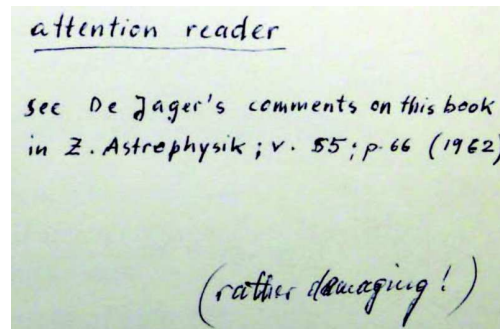 attention reader
see De Jager's comments on this book
in Z. Astrophysik; v. 55; p. 66 (1962)
(rather damaging!)